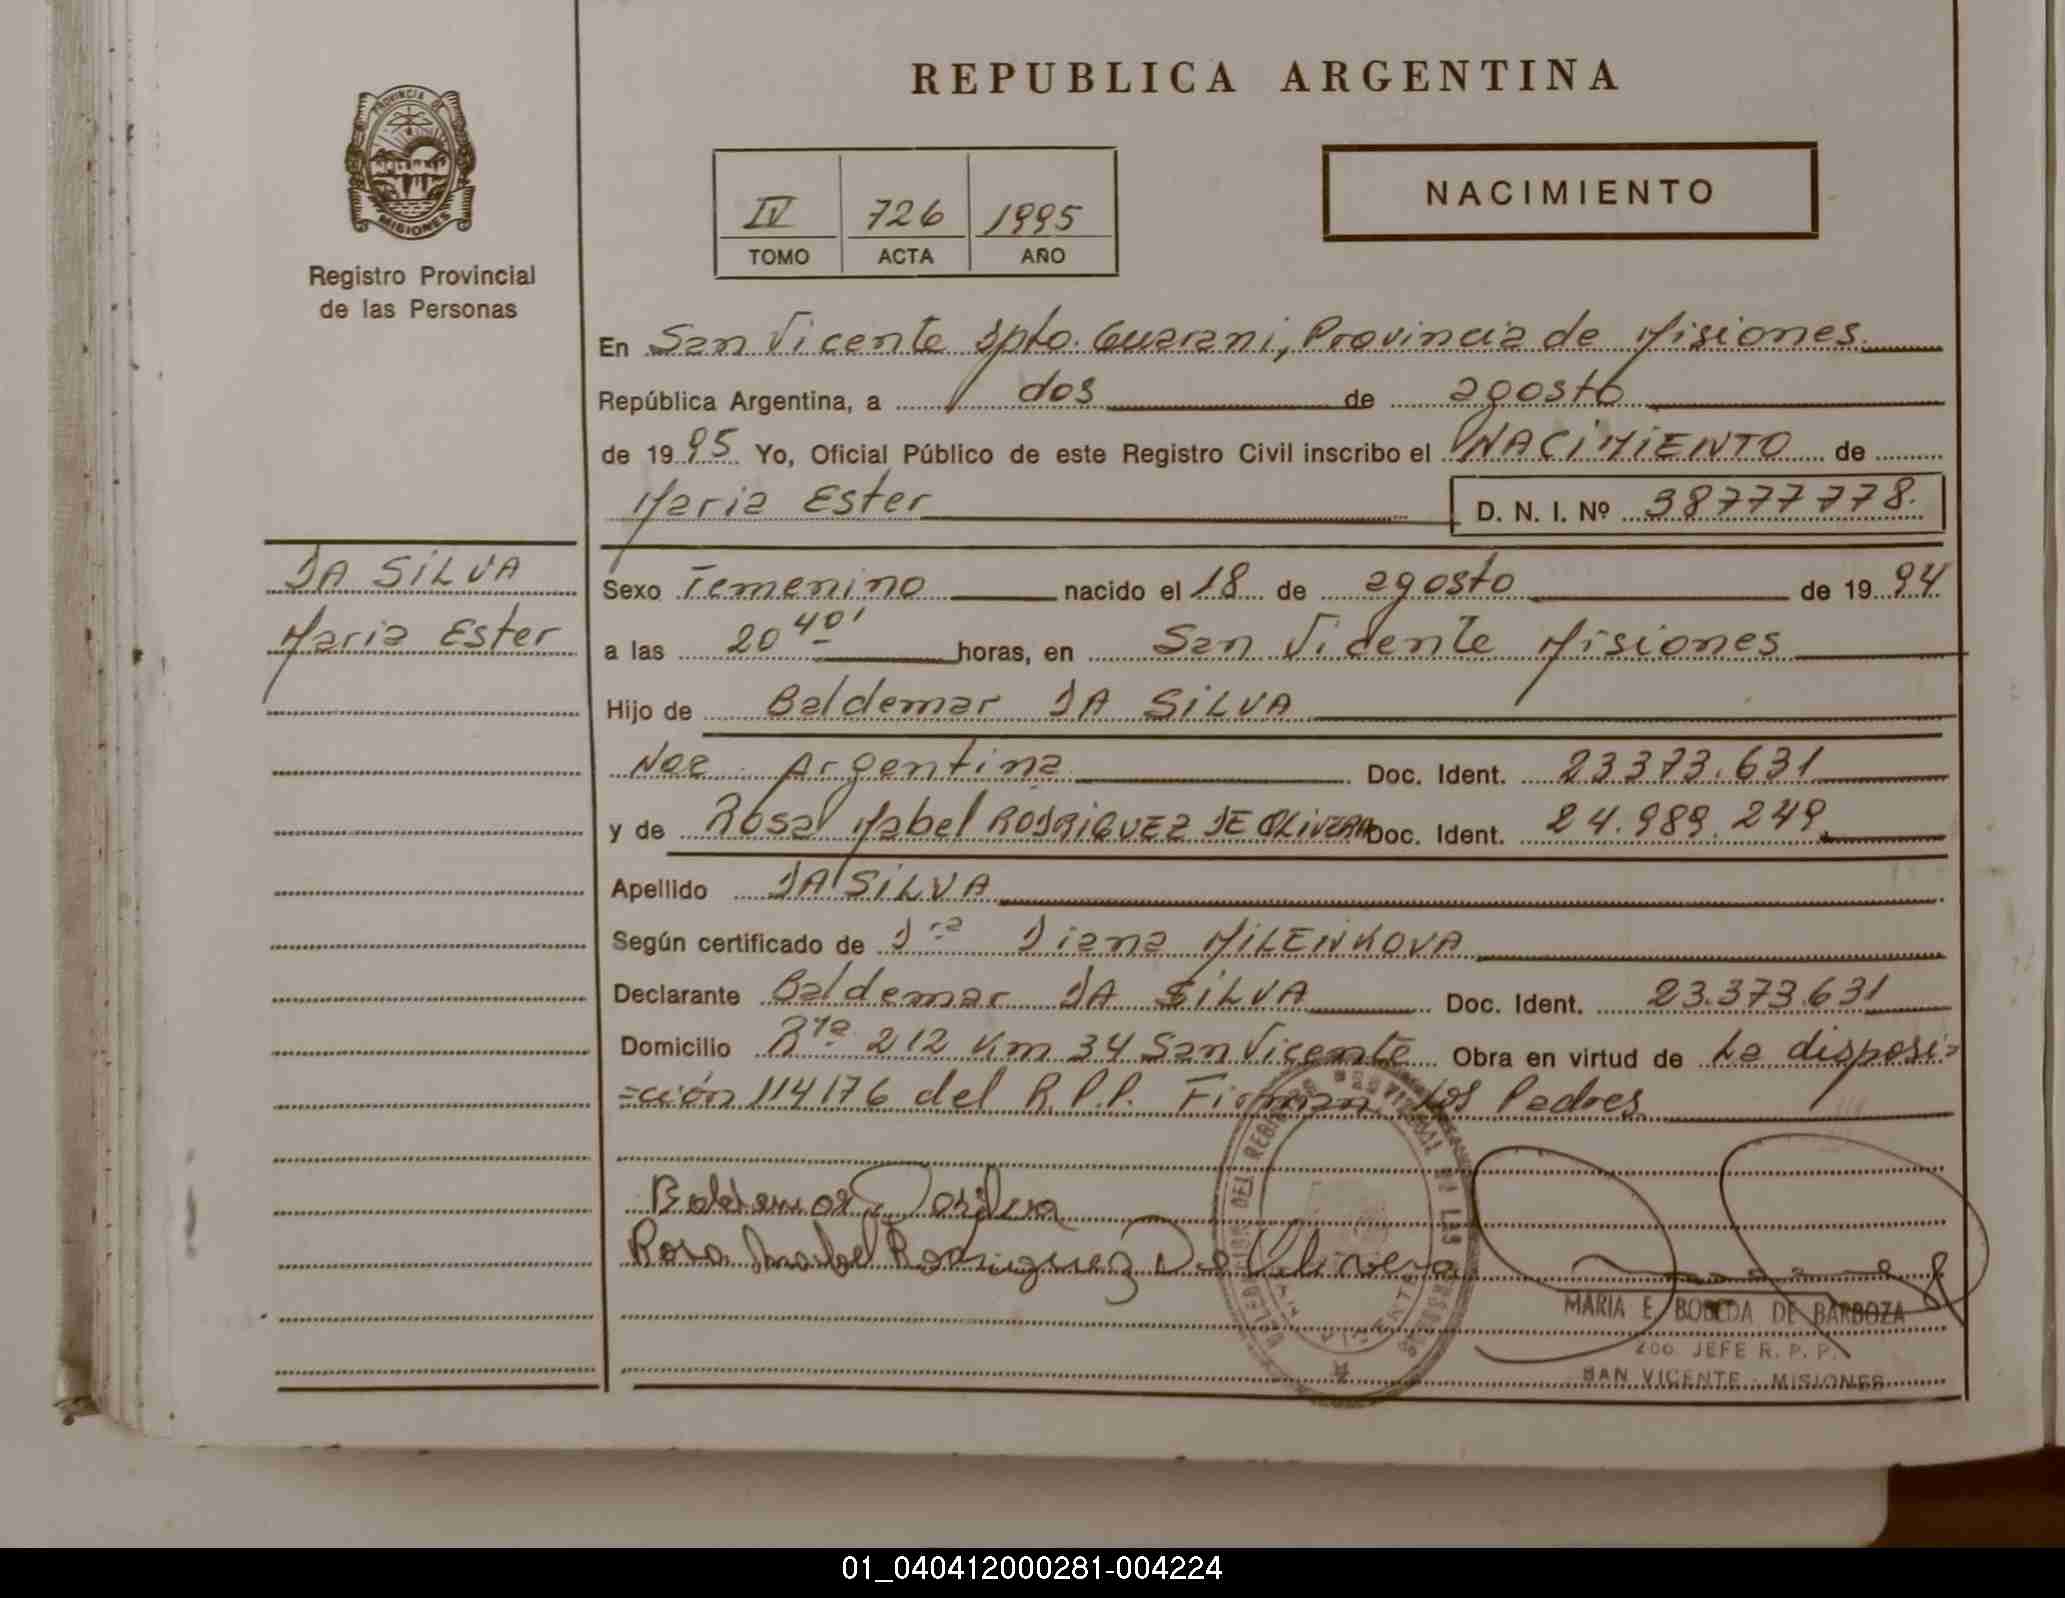 REPUBLICA ARGENTINA
PROVINCIA DE
MISIONES
Registro Provincial
de las Personas
IV 726 1995
TOMO ACTA AÑO
NACIMIENTO
En San Vicente Dpto. Guarani, Provincia de Misiones.
República Argentina, a dos de agosto
de 1995 Yo, Oficial Público de este Registro Civil inscribo el NACIMIENTO de
Maria Ester D. N. I. Nº 38777778.
DA SILVA
Maria Ester
Sexo Femenino nacido el 18 de agosto de 1994
a las 20 40' horas, en San Vicente Misiones
Hijo de Baldemar DA SILVA
Nac. Argentina Doc. Ident. 23373.631
y de Rosa Mabel RODRIGUEZ DE OLIVERA Doc. Ident. 24.989.249.
Apellido DA SILVA
Según certificado de Dra Diana MILENKOVA
Declarante Baldemar DA SILVA Doc. Ident. 23.373.631
Domicilio Rta 212 Km 34 San Vicente Obra en virtud de La disposi=
=ción 114176 del R.P.P. Firman los Padres
Baldemar Dasilva
Rosa Mabel Rodriguez De Olivera
MARIA E. BOBEDA DE BARBOZA
2do. JEFE R. P. P.
SAN VICENTE - MISIONES
01_040412000281-004224